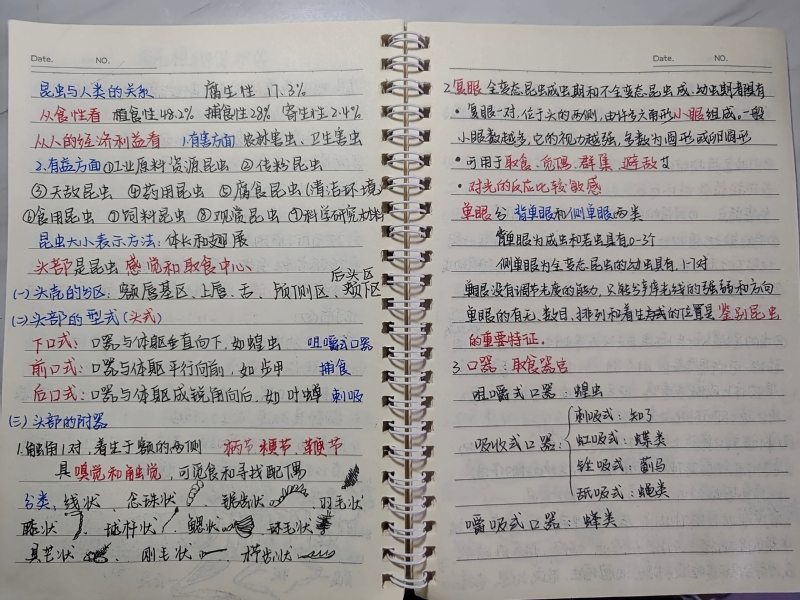 Date. NO.
昆虫与人类的关系 腐生性 17.3%
从食性看 植食性48.2% 捕食性28% 寄生性2.4%
从人的经济利益看 1.有害方面 农林害虫、卫生害虫
2.有益方面①工业原料资源昆虫 ②传粉昆虫
③天敌昆虫 ④药用昆虫 ⑤腐食昆虫(清洁环境)
⑥食用昆虫 ⑦饲料昆虫 ⑧观赏昆虫 ⑨科学研究材料
昆虫大小表示方法:体长和翅展
头部是昆虫 感觉和取食中心
后头区
(一)头壳的分区:额唇基区、上唇、舌、颅侧区、颊下区
(二)头部的型式(头式)
下口式:口器与体躯垂直向下,如蝗虫 咀嚼式口器
前口式:口器与体躯平行向前,如步甲 捕食
后口式:口器与体躯成锐角向后,如叶蝉 刺吸
(三)头部的附器
1.触角1对,着生于额的两侧 柄节 梗节、鞭节
具嗅觉和触觉,可觅食和寻找配偶
分类、线状、念珠状 锯齿状 羽毛状
膝状 球杆状 鳃状 环毛状
具芒状 刚毛状 栉齿状
Date. NO.
2.复眼 全变态昆虫成虫期和不全变态昆虫成、幼虫期都具有
·复眼一对,位于头的两侧,由许多六角形小眼组成。一般
小眼数越多,它的视力越强,多数为圆形或卵圆形
·可用于取食、觅偶、群集、避敌
·对光的反应比较敏感
单眼分 背单眼和侧单眼两类
背单眼为成虫和若虫具有0-3个
侧单眼为全变态昆虫的幼虫具有,1-7对
单眼没有调节光度的能力,只能分辨光线的强弱和方向
单眼的有无、数目、排列和着生的位置是 鉴别昆虫
的重要特征.
3.口器:取食器官
咀嚼式口器:蝗虫
刺吸式:知了
吸收式口器: 虹吸式:蝶类
锉吸式:蓟马
舐吸式:蝇类
嚼吸式口器:蜂类